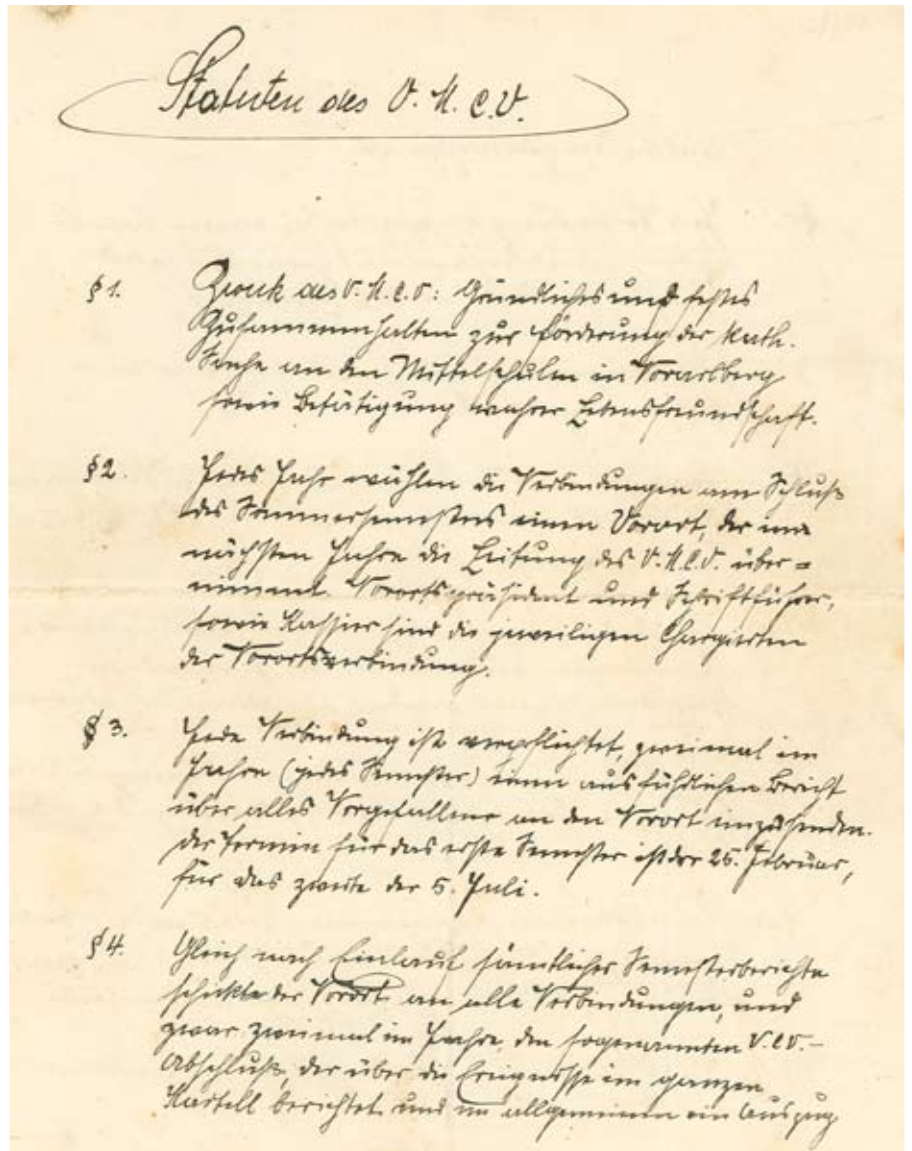 Statuten des V. M. C. V.
§ 1. Zweck des V. M. C. V.: Gründliches und festes
Zusammenhalten zur Förderung der kath.
Sache an den Mittelschulen in Vorarlberg
sowie Betätigung wahrer Lebensfreundschaft.
§ 2. Jedes Jahr wählen die Verbindungen am Schluß
des Sommersemesters einen Vorort, der im
nächsten Jahre die Leitung des V. M. C. V. über=
nimmt. Vorortspräsident und Schriftführer,
sowie Kassier sind die jeweiligen Chargierten
der Vorortsverbindung.
§ 3. Jede Verbindung ist verpflichtet, zweimal im
Jahre (jedes Semester) einen ausführlichen Bericht
über alles Vorgefallene an den Vorort einzusenden.
Der Termin für das erste Semester ist der 25. Februar,
für das zweite der 5. Juli.
§ 4. Gleich nach Einlauf sämtlicher Semesterberichte
schickt der Vorort an alle Verbindungen, und
zwar zweimal im Jahre, den sogenannten V.C.V.-
Abschluß, der über die Ereignisse im ganzen
Kartell berichtet und im allgemeinen ein Auszug